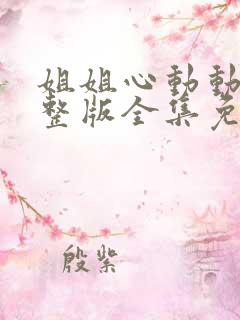 姐姐心动动
整版全集免
殷紫